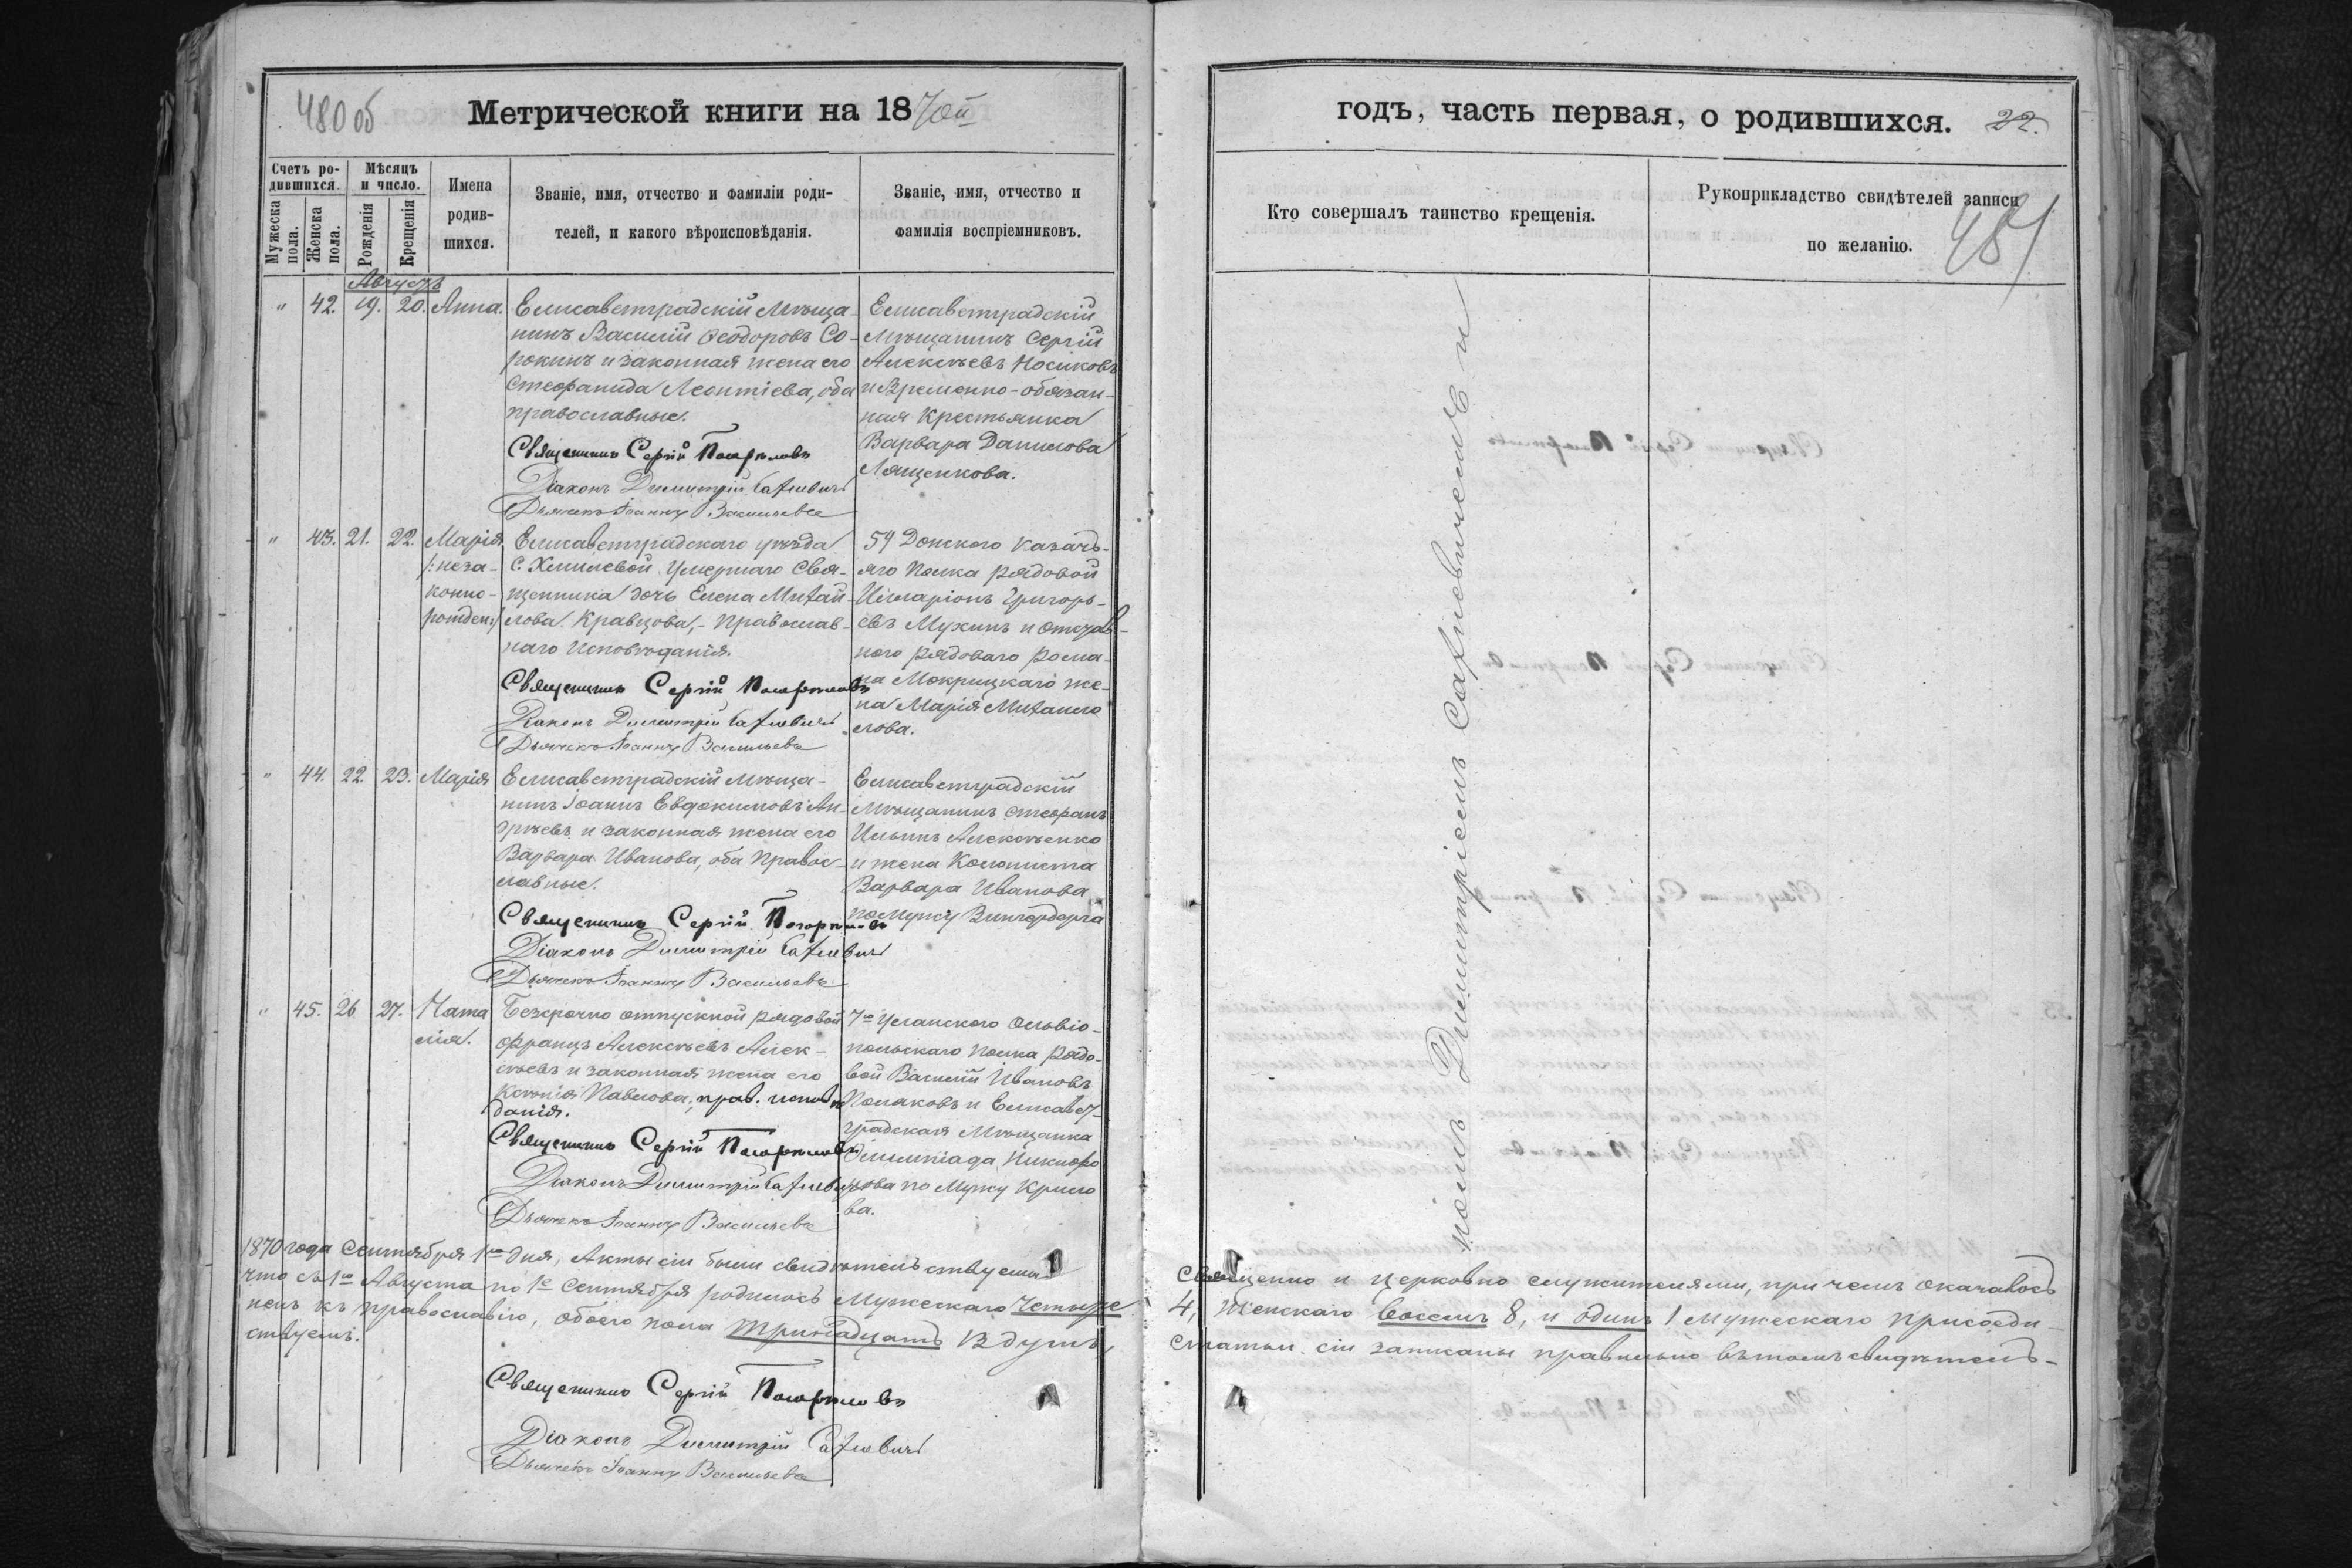 480 об
Метрической книги на 1870й
Счетъ ро-
дившихся.
Мужеска пола.
Женска пола.
Мѣсяцъ
и число.
Рожденія
Крещенія
Имена
родив-
шихся.
Званіе, имя, отчество и фамиліи роди-
телей, и какого вѣроисповѣданія.
Званіе, имя, отчество и
фамилія воспріемниковъ.
Августъ
" 42. 19. 20. Анна.
Елисаветградскій мѣща-
нинъ Василій Ѳеодоровъ Со-
рокинъ и законная жена его
Стефанида Леонтіева, оба
православные.
Священникъ Сергій
Діаконъ Димитрій
Дьячекъ Іоаннъ Васильевъ
Елисаветградскій
мѣщанинъ Сергій
Алексѣевъ Носиковъ
и временно-обязан-
ная крестьянка
Варвара Данилова
Лященкова.
" 43. 21. 22. Марія
/:неза-
конно-
рожден:/
Елисаветградскаго уѣзда
С. Хмилевой умершаго свя-
щенника дочь Елена Михай-
лова Кравцова,- православ-
наго исповѣданія.
Священникъ Сергій
Діаконъ Димитрій
Дьячекъ Іоаннъ Васильевъ
59 Донского казачь-
яго полка рядовой
Илларіонъ Григорь-
евъ Мухинъ и отстав-
ного рядоваго Рома-
на Мокрицкаго же-
на Марія
лова.
" 44. 22. 23. Марія
Елисаветградскій мѣща-
нинъ Іоаннъ Евдокимовъ Ан-
дрѣевъ и законная жена его
Варвара Иванова, оба правос-
лавные.
Священникъ Сергій
Діаконъ Димитрій
Дьячекъ Іоаннъ Васильевъ
Елисаветградскій
мѣщанинъ Стефанъ
Ильинъ Алексѣенко
и жена колониста
Варвара Иванова
по мужу
" 45. 26 27. Ната
лія.
Безсрочно отпускной рядовой
Францъ Алексѣевъ Алек-
сѣевъ и законная жена его
Ксенія Павлова, прав. исповѣ
данія.
Священникъ Сергій
Діаконъ Димитрій
Дьячекъ Іоаннъ Васильевъ
7го уланского Ольвіо-
польскаго полка рядо-
вой Василій Ивановъ
Поляковъ и Елисавет-
градская мѣщанка
Олимпіада Никифо
рова по мужу Крыло
ва.
1870 года сентября 1го дня, акты сіи были свидѣтельствуемы
что съ 1го августа по 1е сентября родилось мужескаго четыре
ненъ къ православію, обоего пола тринадцать 13 душъ,
ствуемъ.
Священникъ Сергій
Діаконъ Димитрій
Дьячекъ Іоаннъ Васильевъ
годъ, часть первая, о родившихся. 22.
Кто совершалъ таинство крещенія.
Рукоприкладство свидѣтелей записи
по желанію.
481
номъ Димитріемъ Сахневичемъ и
священно и церковно служителями, при чемъ оказалось
4, женскаго восемь 8, и одинъ 1 мужескаго присоеди-
статьи сіи записаны правильно въ томъ свидѣтель-